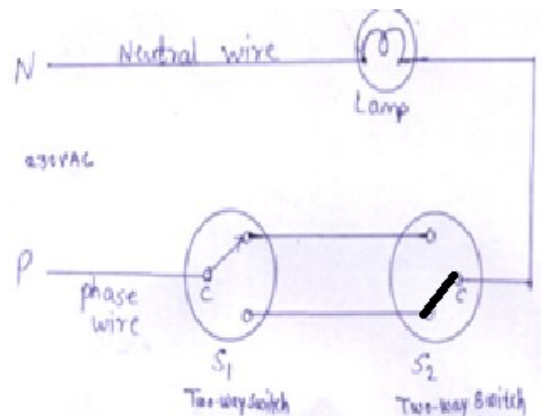 N Neutral wire
Lamp
230VAC
P
phase
wire
C
C
S1
S2
Two-way switch
Two-way Switch